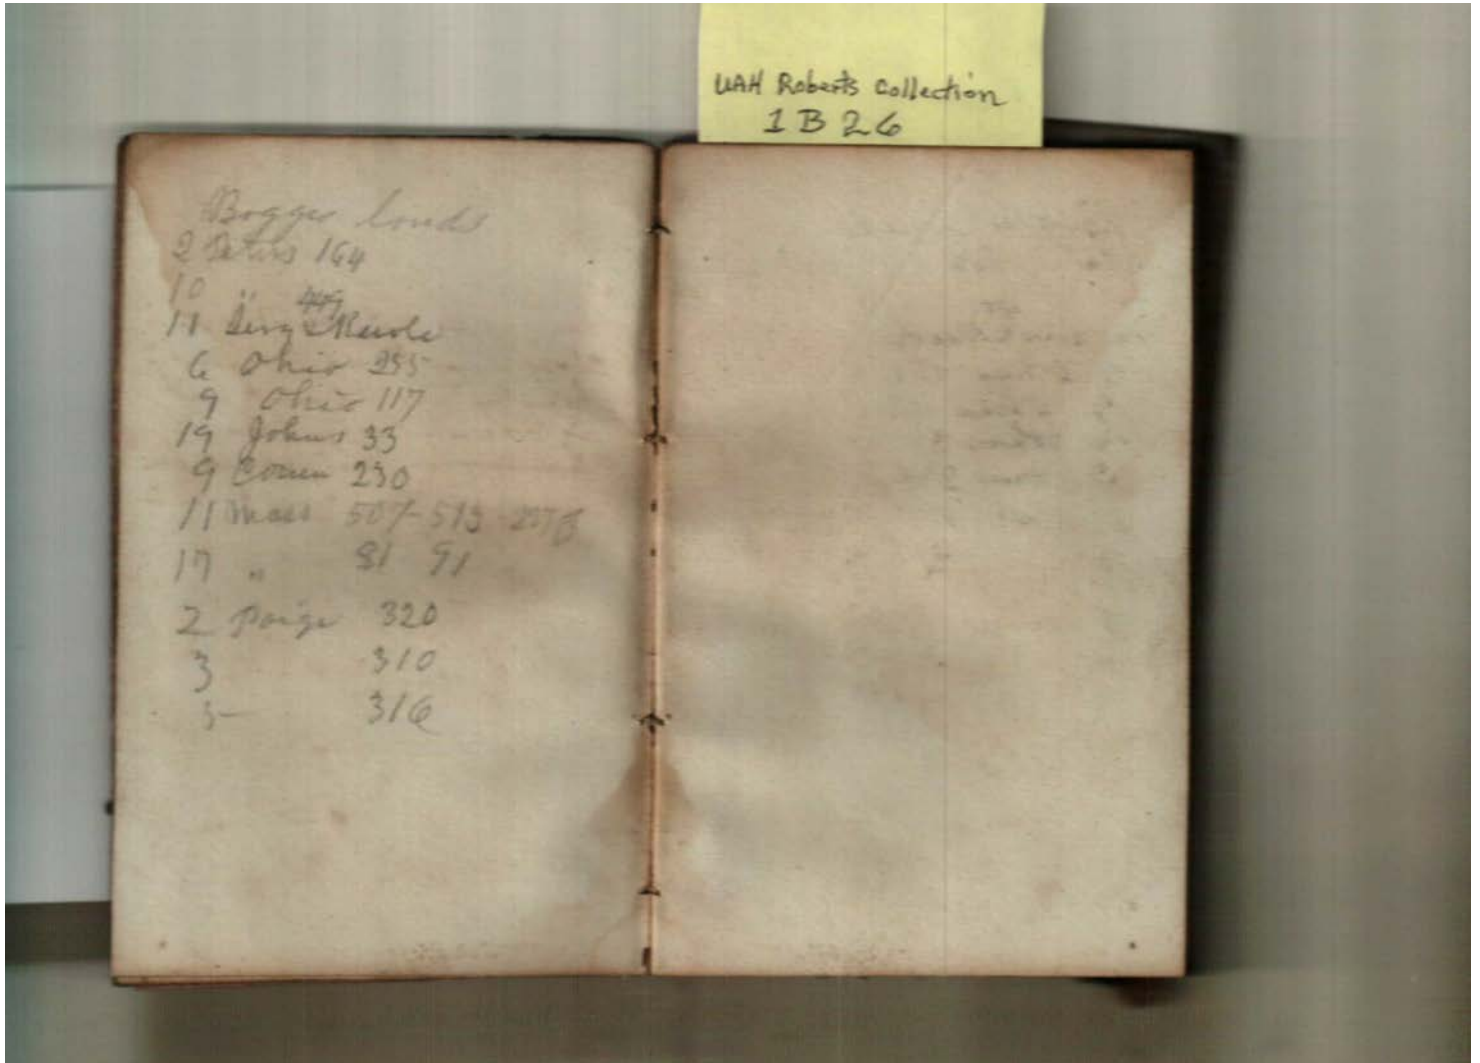 UAH Roberts Collection
1 B 26
Boggs
2 Peters 164
10 "
449
11 Serg & Rawle
6 Ohio 255
9 Ohio 117
19 Johns 33
9 Conn 230
11 Mass 507-513
17 " 81 91
2 Paige 320
3 310
5 316